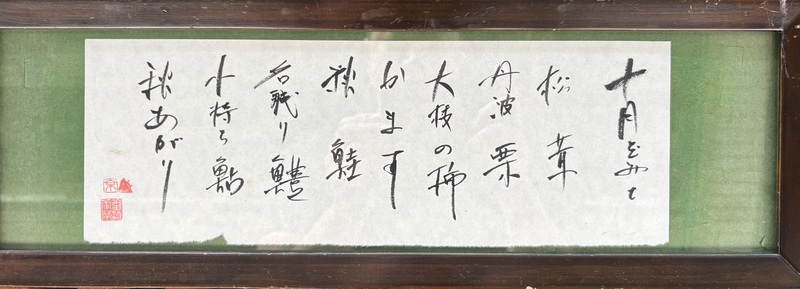 十月
松茸
丹波栗
大枝の柿
かます
秋鮭
名残り鱧
小持ち鮎
秋あがり